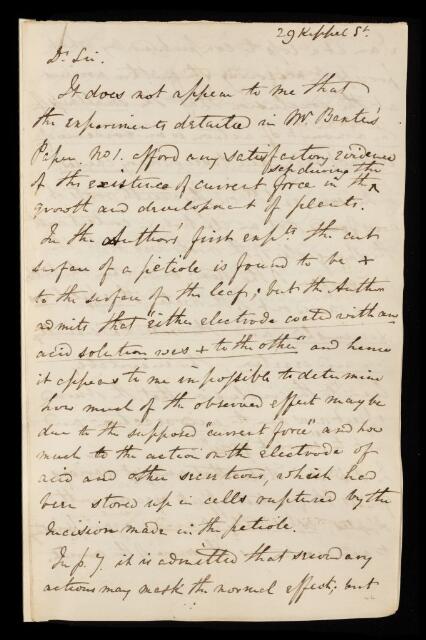 29 Keppel St.
Dr Sir.
It does not appear to me that
the experiments detailed in Mr. Baxter's
Paper. No 1. afford any satisfactory evidence
of the existence of current force in the
during the
growth and development of plants.
In the Author's first expts. the cut
surface of a petiole is found to be +
to the surface of the leaf; but the Author
admits that "either electrode coated with an
acid solution was + to the other" and hence
it appears to me impossible to determine
how much of the observed effect may be
due to the supposed "current force" and how
much to the action on the electrode of
acid and other secretions, which had
been stored up in cells ruptured by the
incision made in the petiole.
In p. 7. it is admitted that secondary
actions may mask the normal effect; but